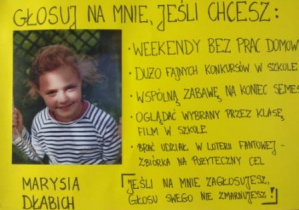 GŁOSUJ NA MNIE, JEŚLI CHCESZ:
• WEEKENDY BEZ PRAC DOMOW
• DUŻO FAJNYCH KONKURSÓW W SZKOLE
• WSPÓLNĄ ZABAWĘ NA KONIEC SEMES
• OGLĄDAĆ WYBRANY PRZEZ KLASĘ
FILM W SZKOLE
• BRAĆ UDZIAŁ W LOTERII FANTOWEJ -
ZBIÓRKA NA POŻYTECZNY CEL
JEŚLI NA MNIE ZAGŁOSUJESZ,
GŁOSU SWEGO NIE ZMARNUJESZ!
MARYSIA
DŁABICH